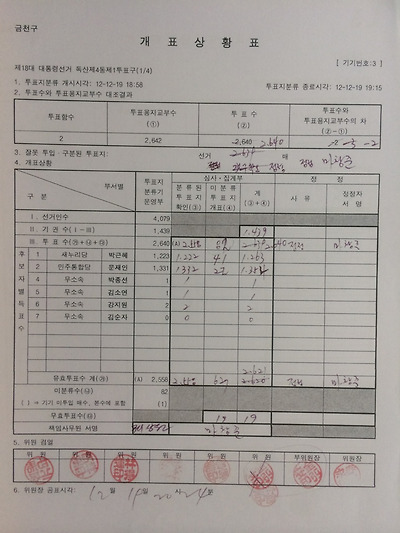 금천구
개 표 상 황 표
[ 기기번호:3 ]
제18대 대통령선거 독산제4동제1투표구(1/4)
1. 투표지분류 개시시각: 12-12-19 18:58 투표지분류 종료시각: 12-12-19 19:15
2. 투표수와 투표용지교부수 대조결과
투표함수 투표용지교부수 (①) 투 표 수 (②) 투표수와 투표용지교부수의 차 (②-①)
2 2,642 2,640 -2
3. 잘못 투입·구분된 투표지: 선거 매
4. 개표상황
구 분 부서별 투표지 분류기 운영부 심사·집계부 정 정
분 류 된 투 표 지 확인(③) 미 분 류 투 표 지 개표(④) 계 (③+④) 사 유 정정자 서 명
Ⅰ. 선거인수 4,079
Ⅱ. 기 권 수 (Ⅰ-Ⅲ) 1,439 1.439
Ⅲ. 투 표 수 (㉮+㉯+㉰) 2,640 (A)
후보자별득표수
1 새누리당 박근혜 1,223 1.222 41 1.263
2 민주통합당 문재인 1,331 1332
3 무소속 박종선 1 1 1
5 무소속 김소연 1 1
6 무소속 강지원 2 2 2
7 무소속 김순자
유효투표수 계(㉮) (A) 2,558
미분류수(㉯) 82
( ) → 기기 미투입 매수, 본수에 포함 (1)
무효투표수(㉰) 19 19
책임사무원 서명
5. 위원 검열
위 원 위 원 위 원 위 원 위 원 위 원 위 원 부위원장 위 원 장
6. 위원장 공표시각: 12월 19일 20시 24분